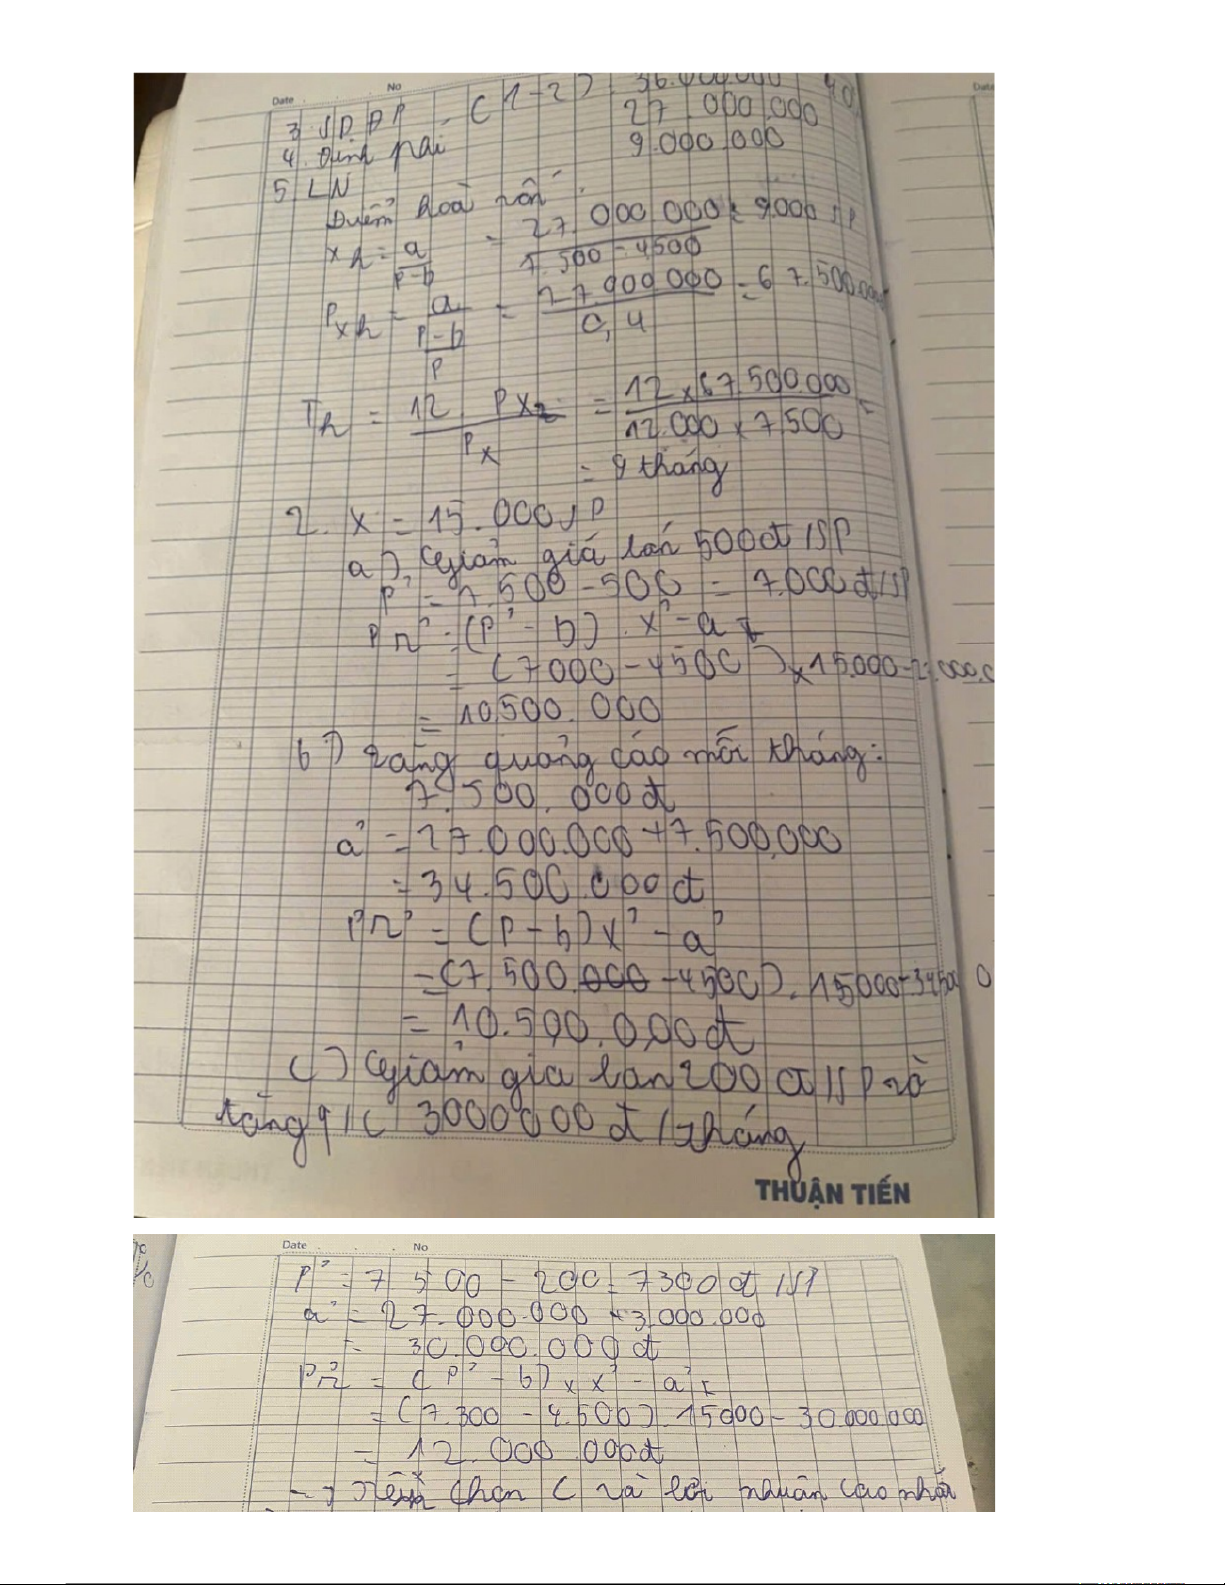 Date No
3 SD ĐP - (1-2) 36.000.000 40
4. Định phí 27.000.000
5 LN 9.000.000
Điểm hoà vốn:
xh = a/(p-b) = 27.000.000/(7.500-4500) = 9000 SP
Pxh = a/((p-b)/p) = 27.000.000/0,4 = 67.500.000
Th = 12.Pxh/Px = 12x67.500.000/12.000x7500 =
= 9 tháng
2. x = 15.000 SP
a) Giảm giá bán 500đ/SP
P' = 7.500-500 = 7.000đ/SP
Pr' = (P'-b).x'-a
= (7000-4500)x15.000-27.000.0
= 10500.000
b) Tăng quảng cáo mỗi tháng:
7.500.000đ
a' = 27.000.000+7.500.000
= 34.500.000đ
Pr' = (P-b)x'-a'
= (7.500.000-4500).15000-34500 0
= 10.500.000đ
c) Giảm giá bán 200đ/SP và
tăng q/c 3000000đ/tháng
THUẬN TIẾN
Date No
P' = 7500-200 = 7300đ/SP
a' = 27.000.000+3.000.000
= 30.000.000đ
Pr' = (P'-b)xx'-a'
= (7.300-4.500).15000-30.000.000
= 12.000.000đ
-> Nên chọn C và lợi nhuận cao nhất